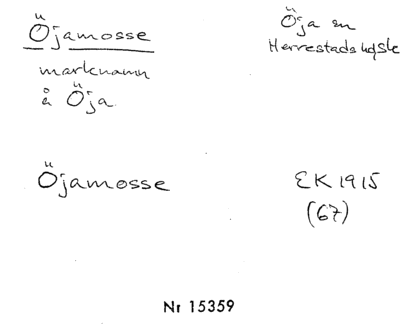 Öjamosse
marknamn
å Öja
Öja sn
Herrestads hd, Sk
Öjamosse
EK 1915
(67)
Nr 15359